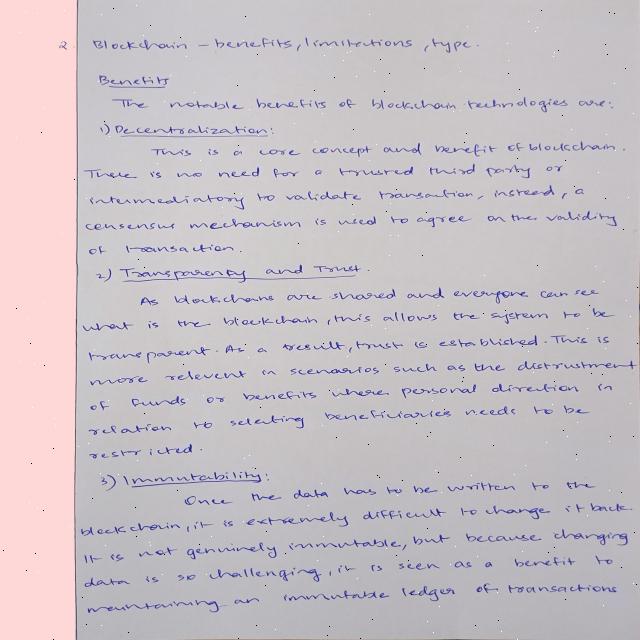 2 Blockchain - benefits, limitections, type.
Benefits
The notable benefits of blockchain technologies are:
1) Decentralization:
This is a core concept and benefit of blockchain.
There is no need for a trusted third party or
intermediatory to validate transaction, instead, a
consensus mechanism is used to agree on the validity
of transaction.
2) Transparency and Trust.
As blockchains are shared and everyone can see
what is the blockchain, this allows the system to be
transparent. As a result, trust is established. This is
more relevent in scenarios such as the distrustment
of funds or benefits where personal direction in
relation to selecting beneficiaries needs to be
restricted.
3) Immutability:
Once the data has to be written to the
blockchain, it is extremely difficult to change it back.
It is not genuinely immutable, but because changing
data is so challenging, it is seen as a benefit to
maintaining an immutable ledger of transactions